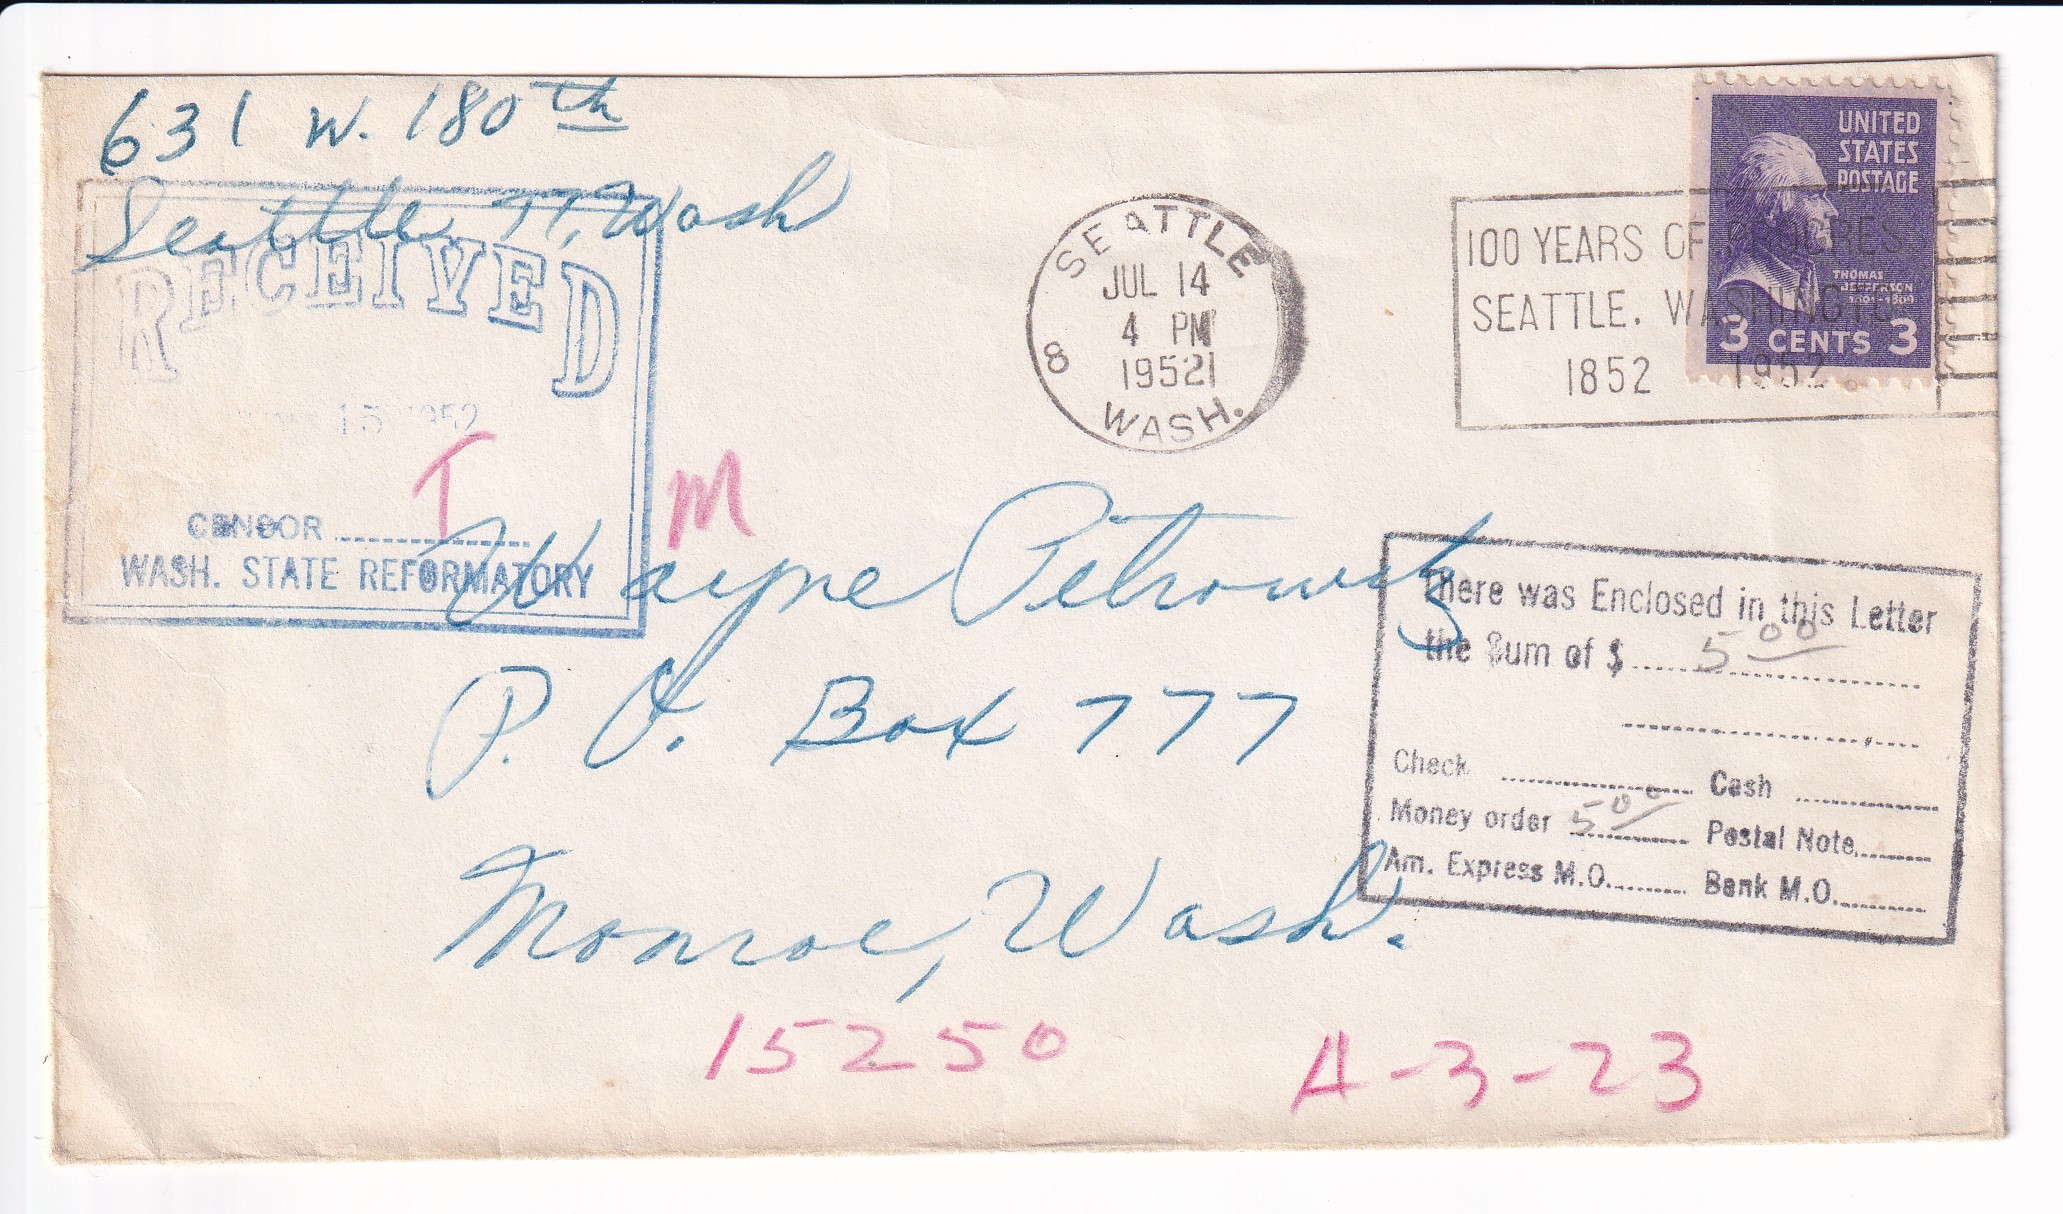 631 W. 180th
Seattle 77, Wash
RECEIVED
15 1952
CENSOR
T M
WASH. STATE REFORMATORY
SEATTLE
JUL 14
4 PM
19521
WASH.
8
100 YEARS OF PROGRES
SEATTLE. WASHINGTO
1852 1952
UNITED
STATES
POSTAGE
THOMAS
JEFFERSON
1801-1809
3 CENTS 3
Wayne Petrowitz
P. O. Box 777
Monroe, Wash.
There was Enclosed in this Letter
the Sum of $ 5 00
Check Cash
Money order 5 00 Postal Note
Am. Express M.O. Bank M.O.
15250 A-3-23